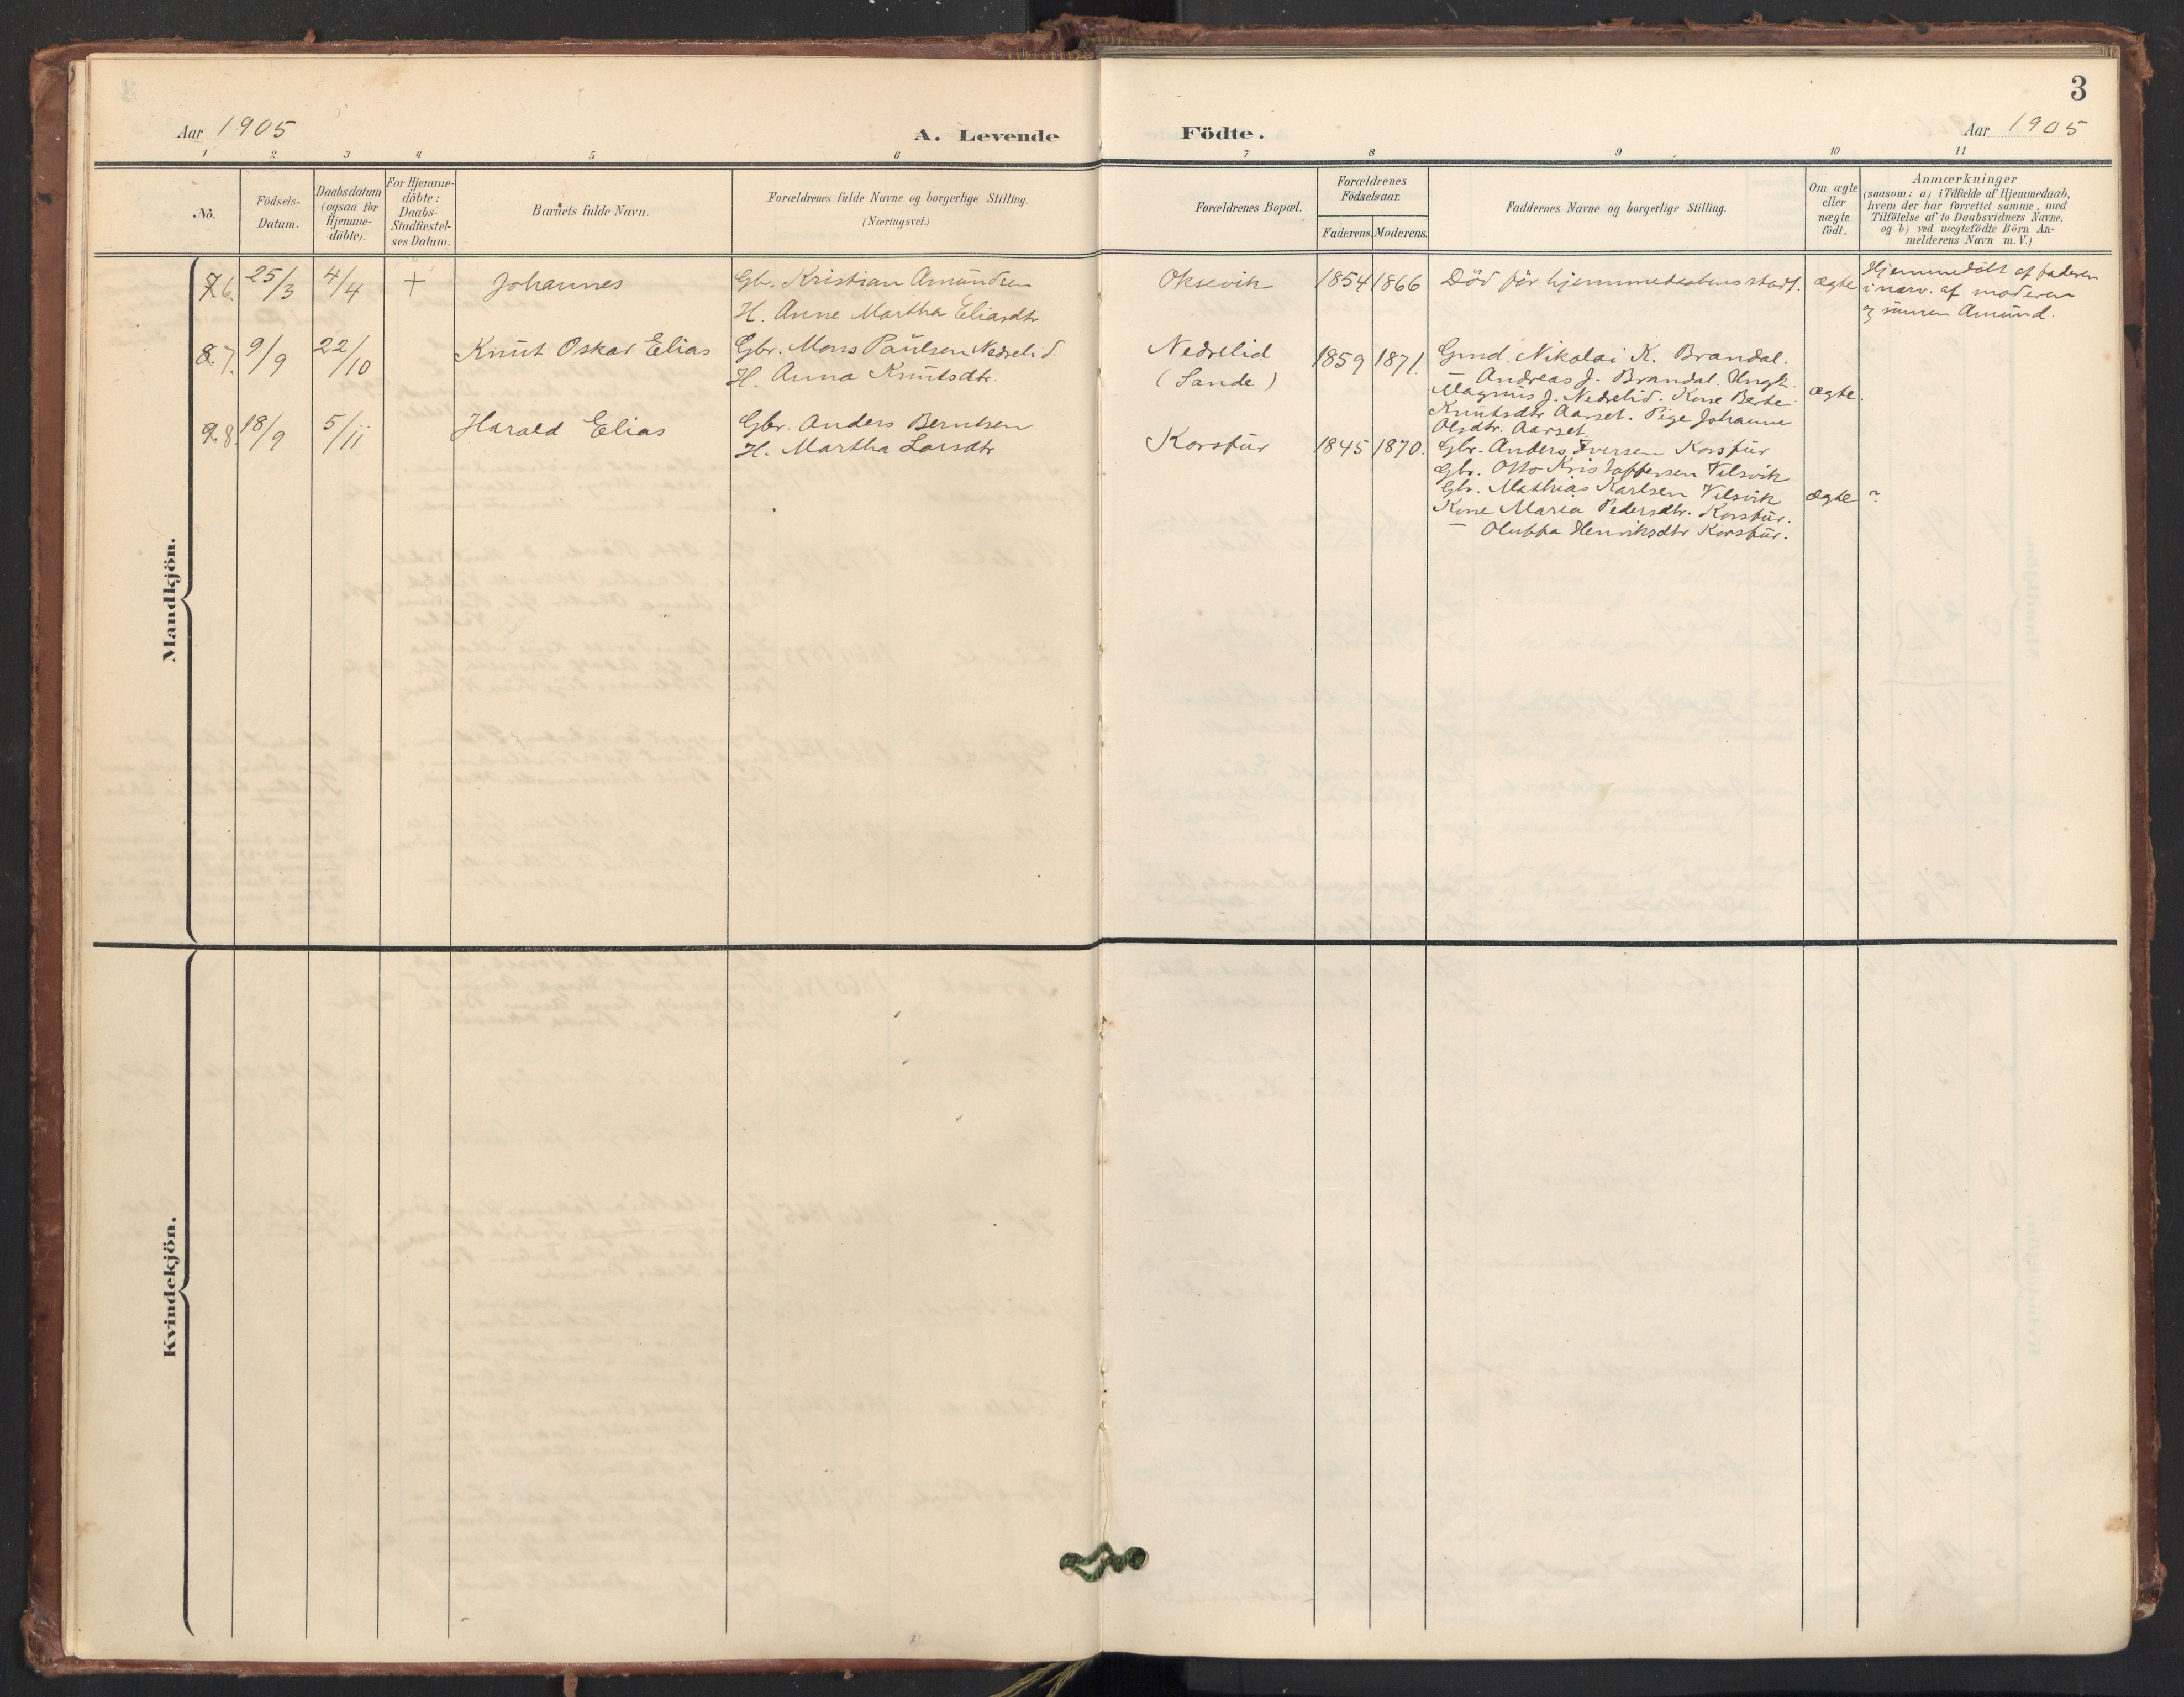 3
Aar 1905
A. Levende Födte.
Aar 1905
1 2 3 4 5 6 7 8 9 10 11
No.
Födsels-
Datum.
Daabsdatum
(ogsaa for
Hjemme-
döbte).
For Hjemme-
döbte:
Daabs-
Stadfæstel-
ses Datum.
Barnets fulde Navn.
Forældrenes fulde Navne og borgerlige Stilling.
(Næringsvei.)
Forældrenes Bopæl.
Forældrenes
Födselsaar.
Faderens. Moderens.
Faddernes Navne og borgerlige Stilling.
Om ægte
eller
uægte
födt.
Anmærkninger
(saasom: a) i Tilfælde af Hjemmedaab,
hvem der har forrettet samme, med
Tilföielse af to Daabsvidners Navne.
og b) ved uægtefödte Börn An-
melderens Navn m. V.)
Mandkjön.
7.6. 25/3 4/4 + Johannes
Gbr. Kristian Amundsen
H. Anne Martha Eliasdtr
Oksevik 1854 1866 Död för hjemmedaabens stadf. ægte
Hjemmedöbt af faderen
i nærv. af moderen
og sönnen Amund.
8.7. 9/9 22/10 Knut Oskar Elias
Gbr. Mons Paulsen Nedrelid
H. Anna Knutsdtr.
Nedrelid
(Sande)
1859 1871.
Gmd. Nikolai K. Brandal.
— Andreas J. Brandal. Ungk.
Magnus J. Nedrelid. Kone Berte
Knutsdtr Aarset. Pige Johanne
Olsdtr. Aarset.
ægte.
9.8. 18/9 5/11 Harald Elias
Gbr. Anders Berntsen
H. Martha Larsdtr
Korsfur 1845 1870.
Gbr. Anders Iversen Korsfur
Gbr. Otto Kristoffersen Vilsvik
Gbr. Mathias Karlsen Vilsvik
Kone Maria Pedersdtr. Korsfur.
— Oluffa Henriksdtr Korsfur.
ægte ?
Kvindekjön.